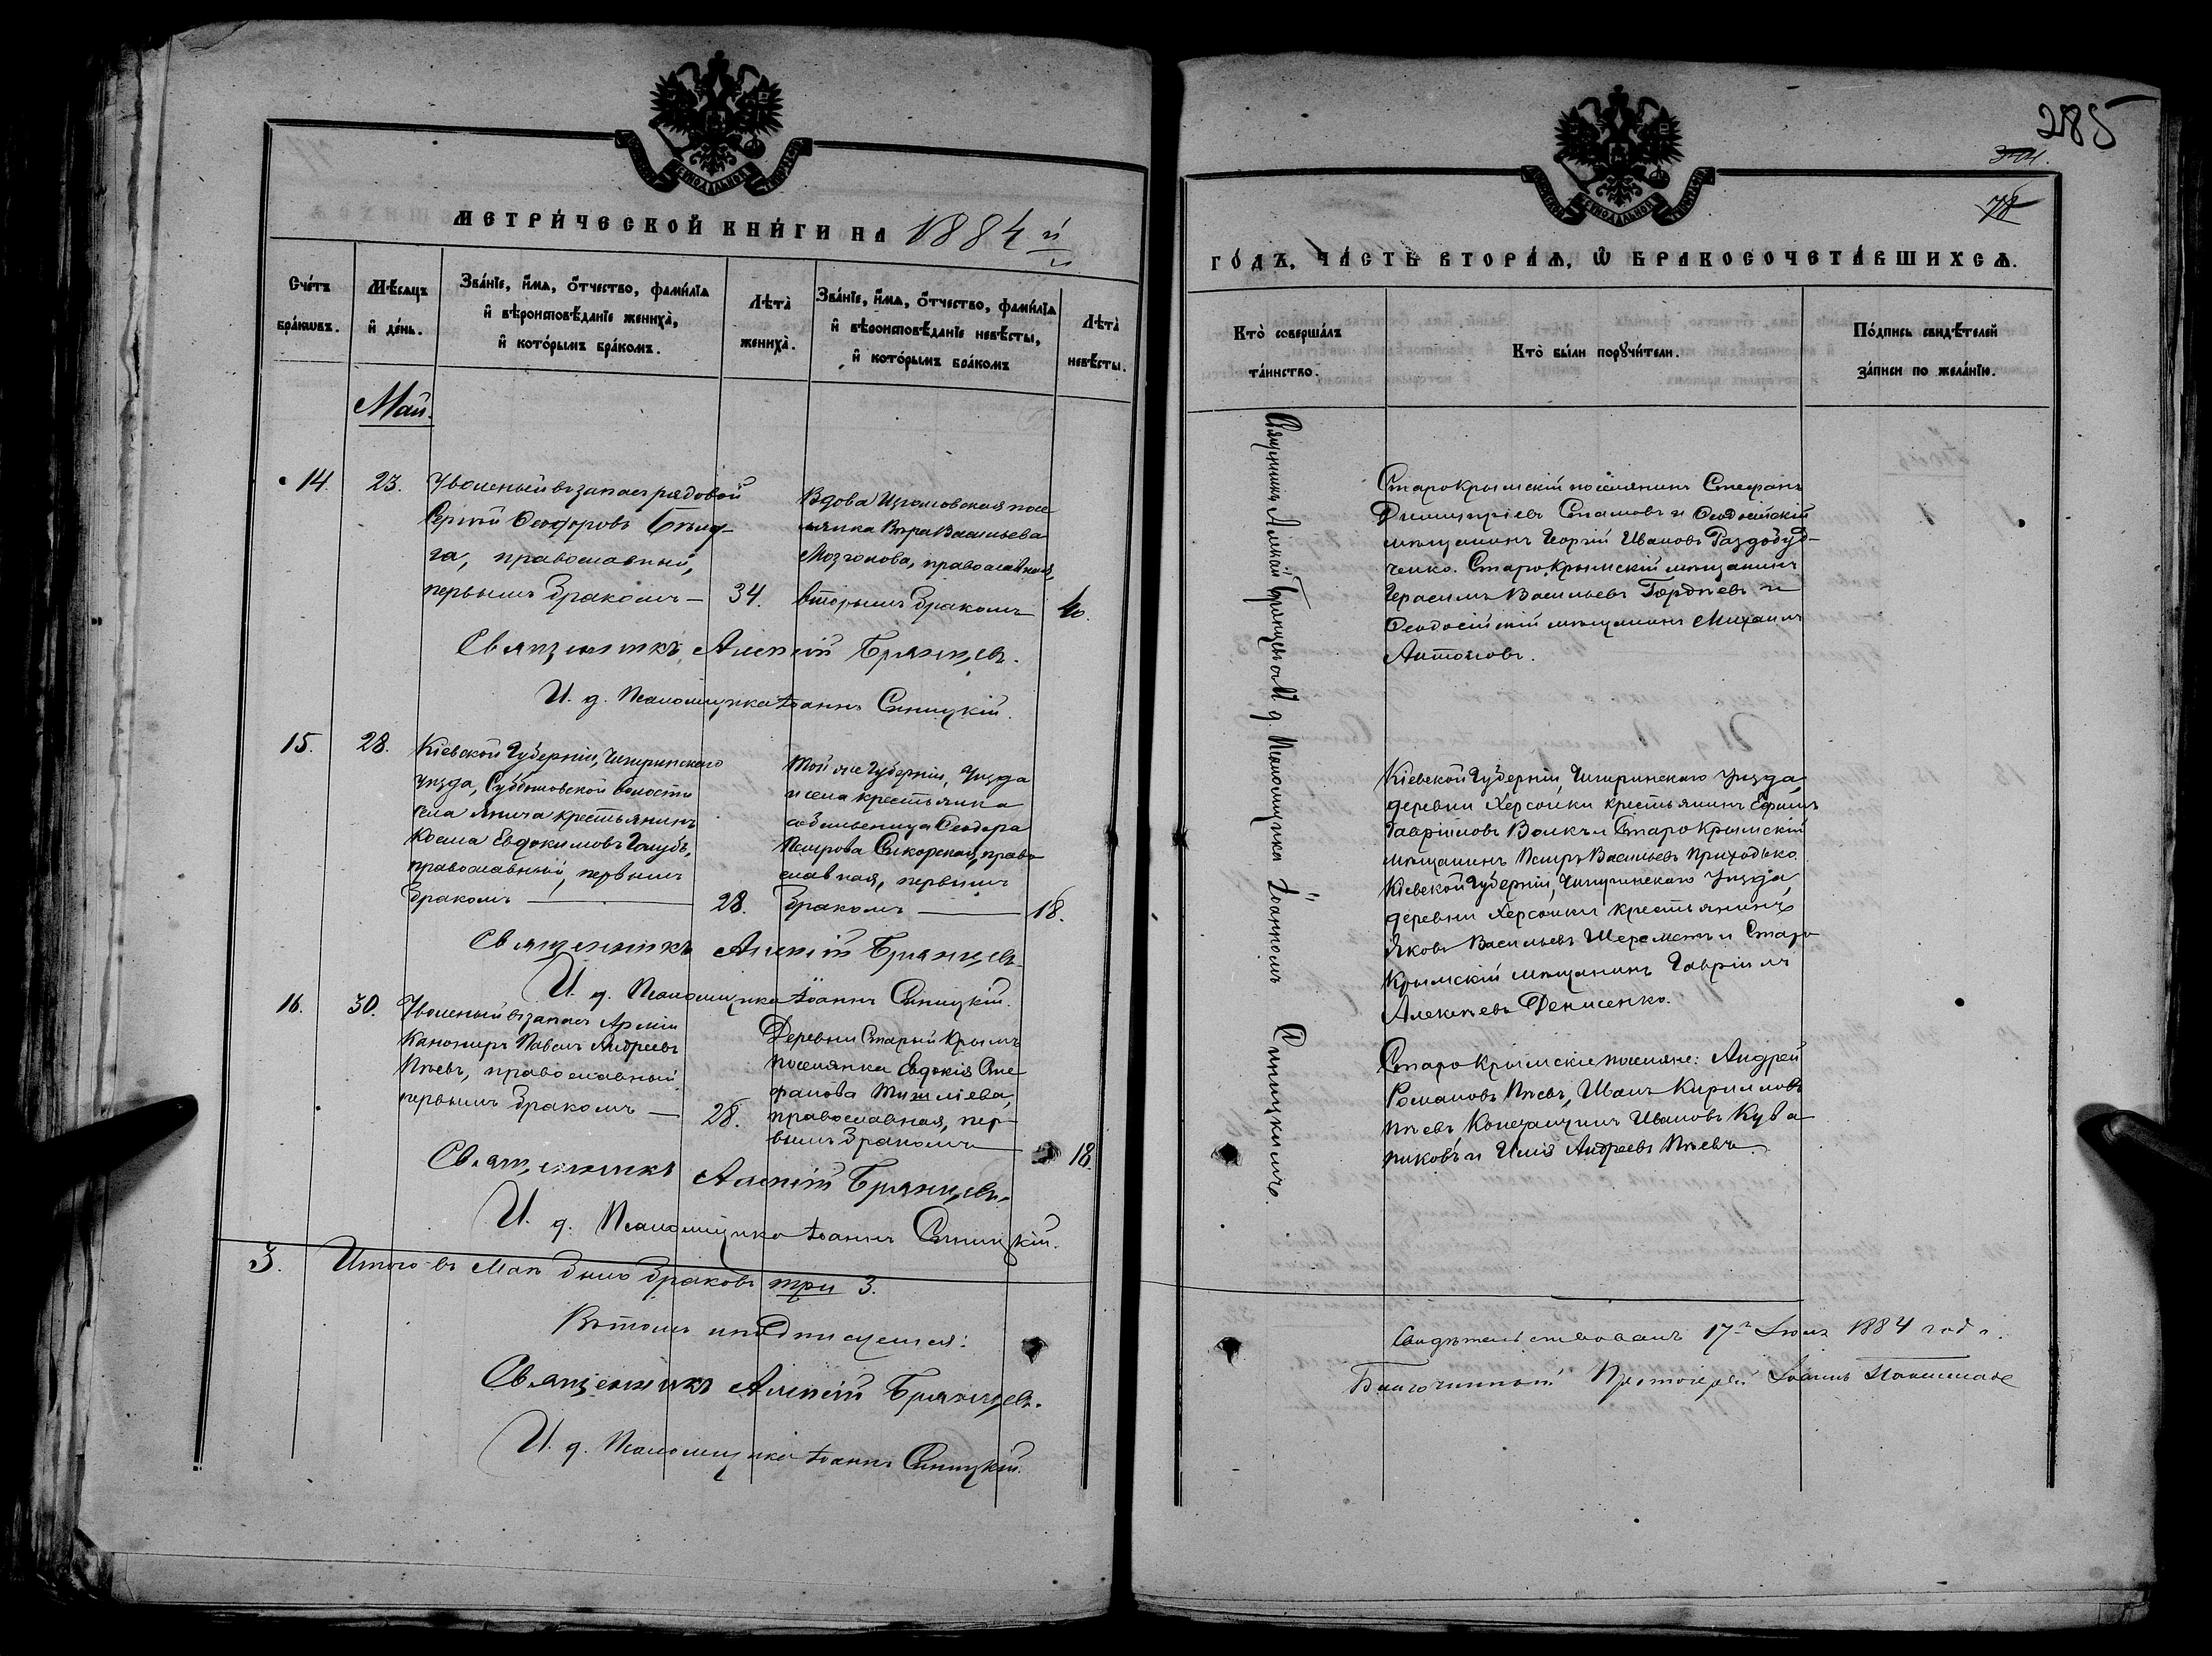 МЕТРИ́ЧЕСКОЙ КНИ́ГИ НА 1884 й
Сче́тъ бра́кωвъ.
Мѣ́сяцъ и де́нь.
Зва́нїе, и́мѧ, о́тчество, фами́лїѧ и вѣроисповѣ́данїе жениха̀, и кото́рымъ бра́комъ.
Лѣта̀ жениха̀.
Зва́нїе, и́мѧ, о́тчество, фами́лїѧ и вѣроисповѣ́данїе невѣ́сты, и кото́рымъ бра́комъ
Лѣта̀ невѣ́сты.
Май.
14. 23.
Уволеный въ запасъ рядовой
Сергій Ѳеодоровъ
православный,
первымъ бракомъ — 34.
Вдова посе
лянка Вѣра Васильева
Мозголова, православная,
вторымъ бракомъ 40.
Священникъ Алексій Брянцевъ.
И. д. Псаломщика Іоаннъ Синицкій.
15. 28.
Кіевской Губерніи, Чигиринскаго
Уѣзда, Субботовской волости
села Янича крестьянинъ
Косма Евдокимовъ Голубъ,
православный, первымъ
бракомъ — 28.
Той же Губерніи, Уѣзда
и села крестьянка
собственица Ѳеодора
Петрова Сикорская, право
славная, первымъ
бракомъ — 18.
Священникъ Алексій Брянцевъ
И. д. Псаломщика Іоаннъ Синицкій.
16. 30.
Уволеный въ запасъ Арміи
Канониръ Павелъ Андреевъ
Пѣевъ, православный
первымъ бракомъ — 28.
Деревни Старый Крымъ
поселянка Евдокія Сте
фанова
православная, пер-
вымъ бракомъ — 18.
Священникъ Алексій Брянцевъ.
И. д. Псаломщика Іоаннъ Синицкій.
3. Итого въ Маѣ было браковъ три 3.
Въ томъ и подписуемся:
Священникъ Алексій Брянцевъ.
И. д. Псаломщика Іоаннъ Синицкій.
285
78
ГО́ДЪ, ЧА́СТЬ ВТОРА́Ѧ, Ѡ҆ БРАКОСОЧЕТА́ВШИХСѦ.
Кто̀ соверша́лъ та́инство.
Кто̀ бы́ли порꙋчи́тели.
По́дпись свидѣ́телей за́писи по жела́нїю.
Священникъ Алексій Брянцевъ съ И. д. Псаломщика Іоанномъ Синицкимъ.
Старокрымскій поселянинъ Стефанъ
Димитріевъ Стамовъ и Ѳеодосійскій
мѣщанинъ Георгій Ивановъ Раздобуд-
ченко. Старокрымскій мѣщанинъ
Герасимъ Васильевъ Гордѣевъ и
Ѳеодосійскій мѣщанинъ Михаилъ
Антоновъ.
Кіевской Губерніи, Чигиринскаго Уѣзда,
деревни Херсонки крестьянинъ Ефимъ
Гавріиловъ Волкъ и Старокрымскій
мѣщанинъ Петръ Васильевъ Приходько.
Кіевской Губерніи, Чигиринскаго Уѣзда,
деревни Херсонки крестьянинъ
Яковъ Васильевъ Шереметъ и Старо
Крымскій мѣщанинъ Гавріилъ
Алексѣевъ Денисенко.
Старокрымскіе поселяне: Андрей
Романовъ Пѣевъ, Иванъ Кирилловъ
Пѣевъ Константинъ Ивановъ Кува
никовъ и Илія Андреевъ Пѣевъ.
Свидѣтельствовалъ 17го Іюля 1884 года.
Благочинный Протоіерей Іоаннъ